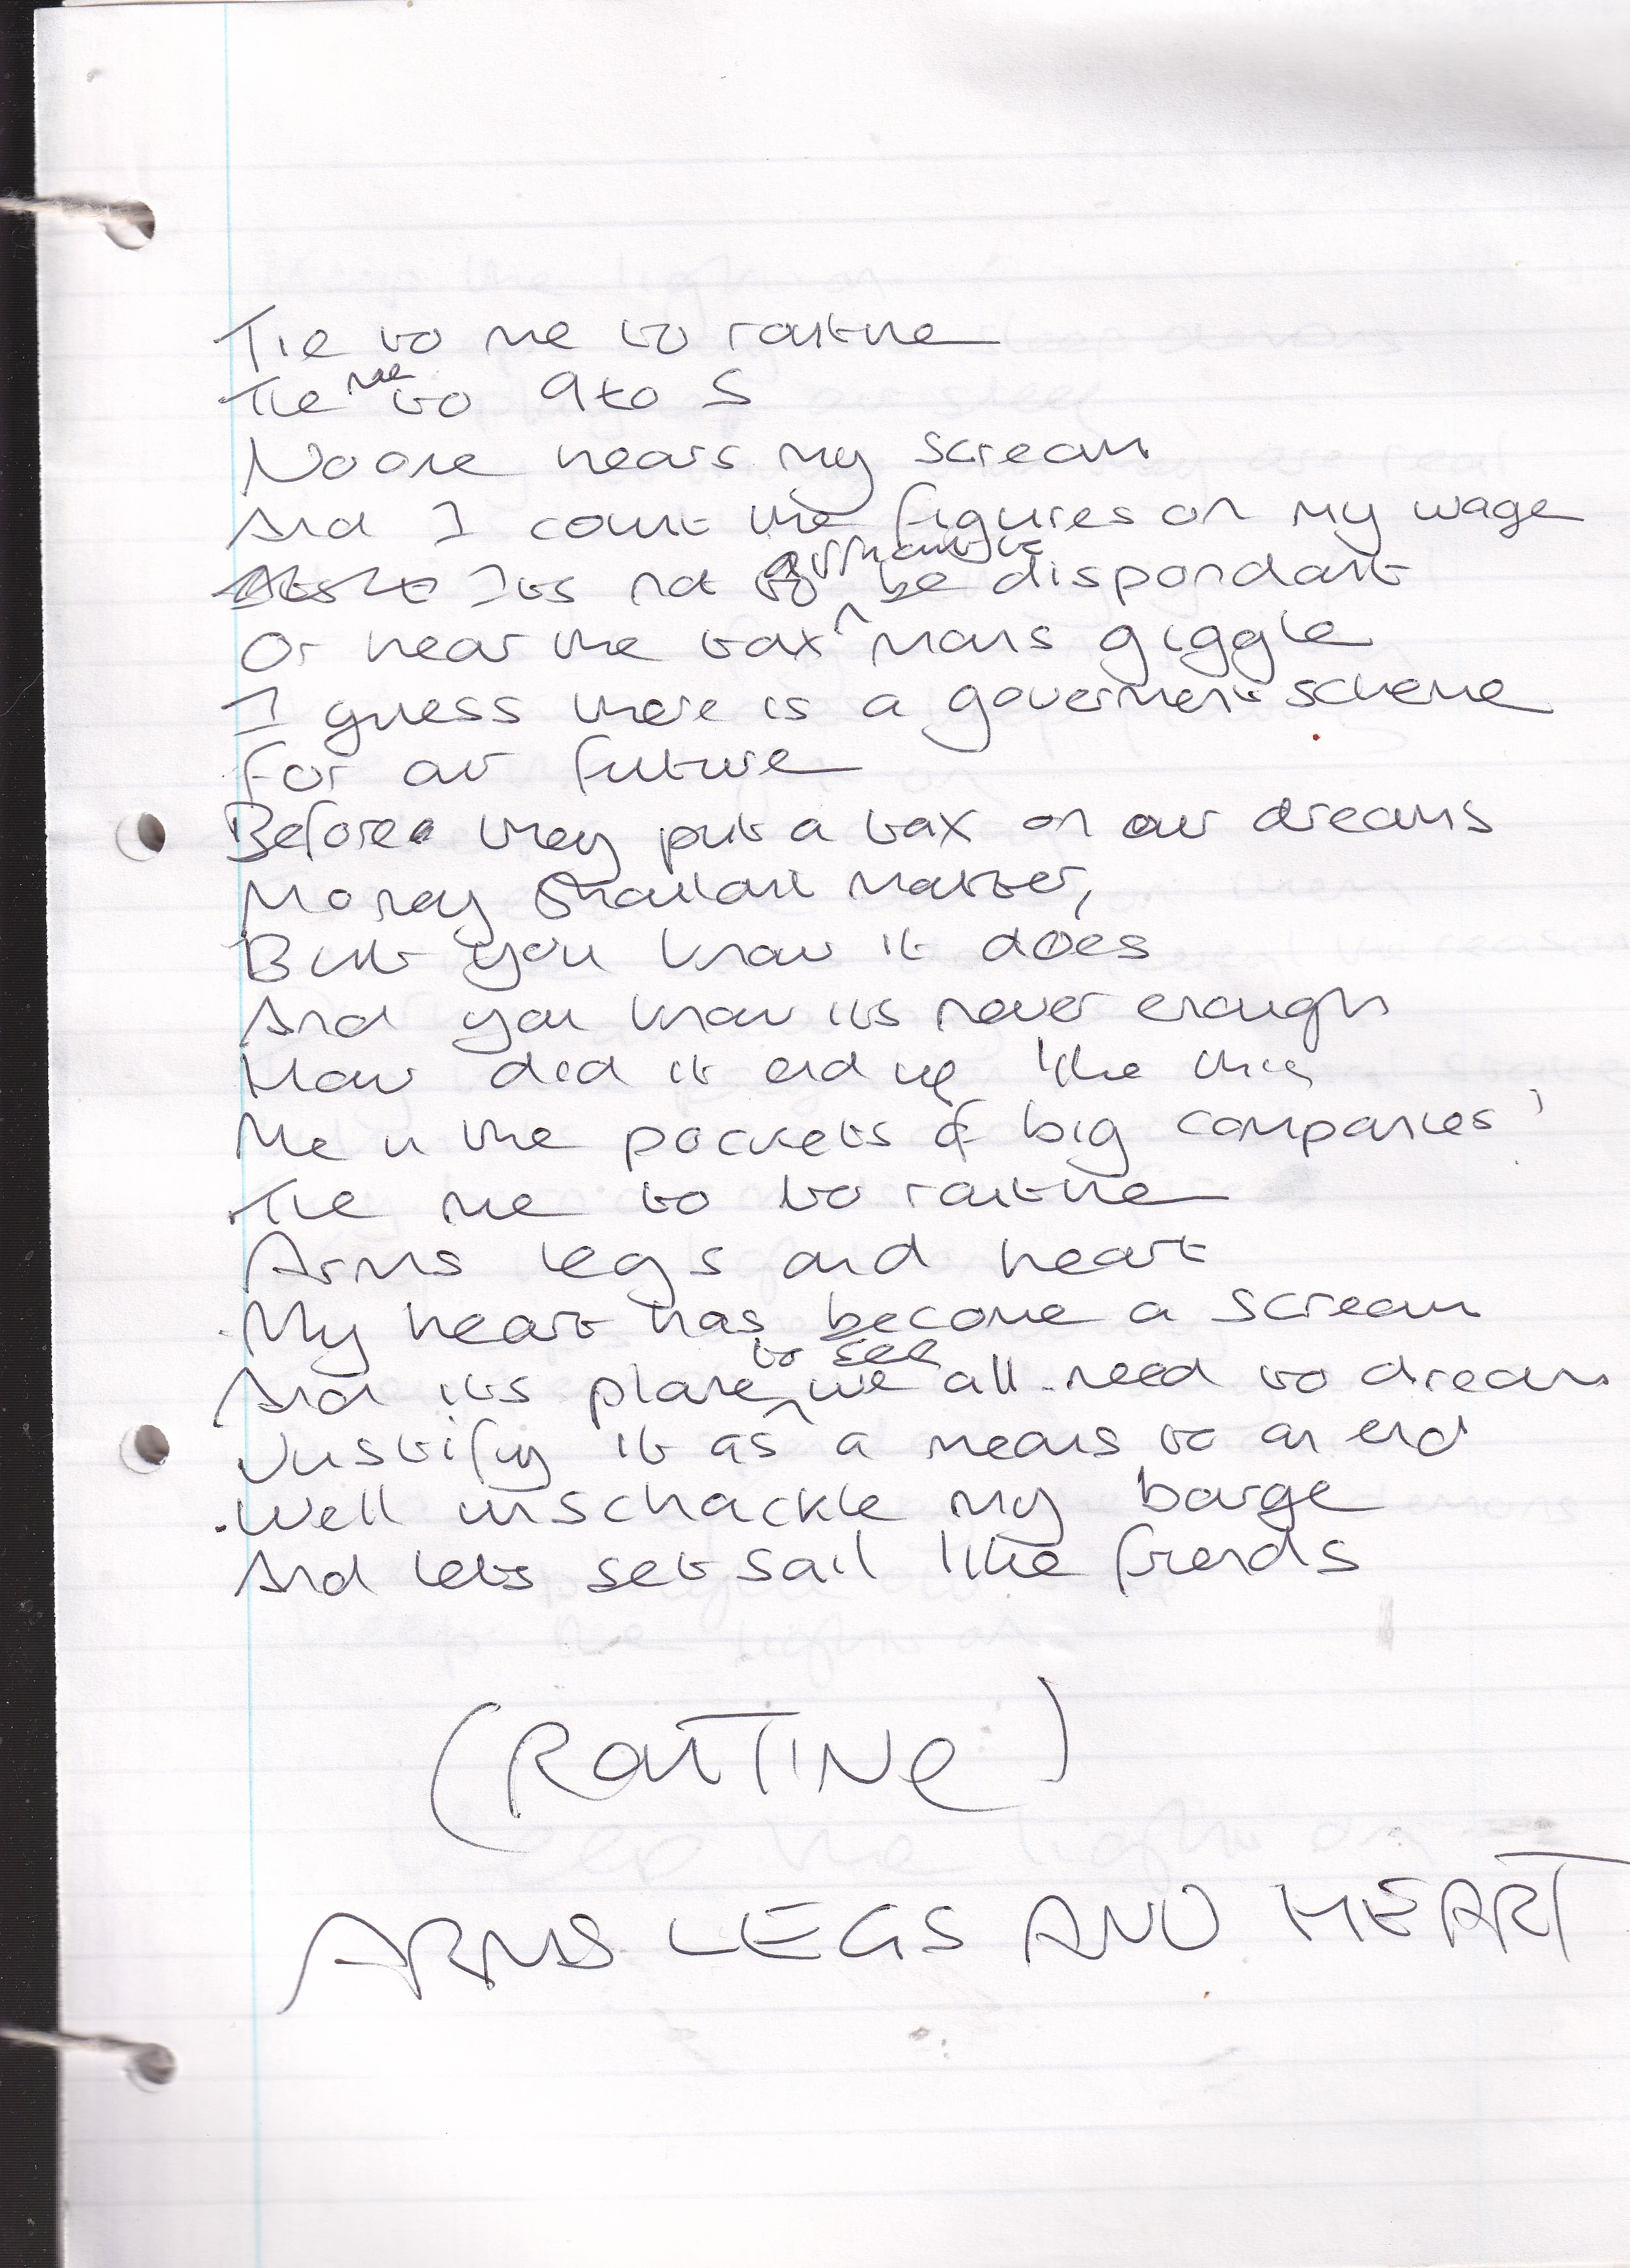 Tie to me to routine
Tie me to 9 to 5
No one hears my scream
And I count the figures on my wage
Its not to be dispondant
Or hear the tax mans giggle
I guess there is a government scheme
For our future
Before they put a tax on our dreams
Money shouldnt matter,
But you know it does
And you know its never enough
How did it end up like this
Me in the pockets of big companies'
Tie me to to routine
Arms legs and heart
My heart has become a scream
And its plane to see we all need to dream
Justify it as a means to an end
Well unschackle my barge
And lets set sail like friends
(ROUTINe)
ARMS LEGS AND HEART